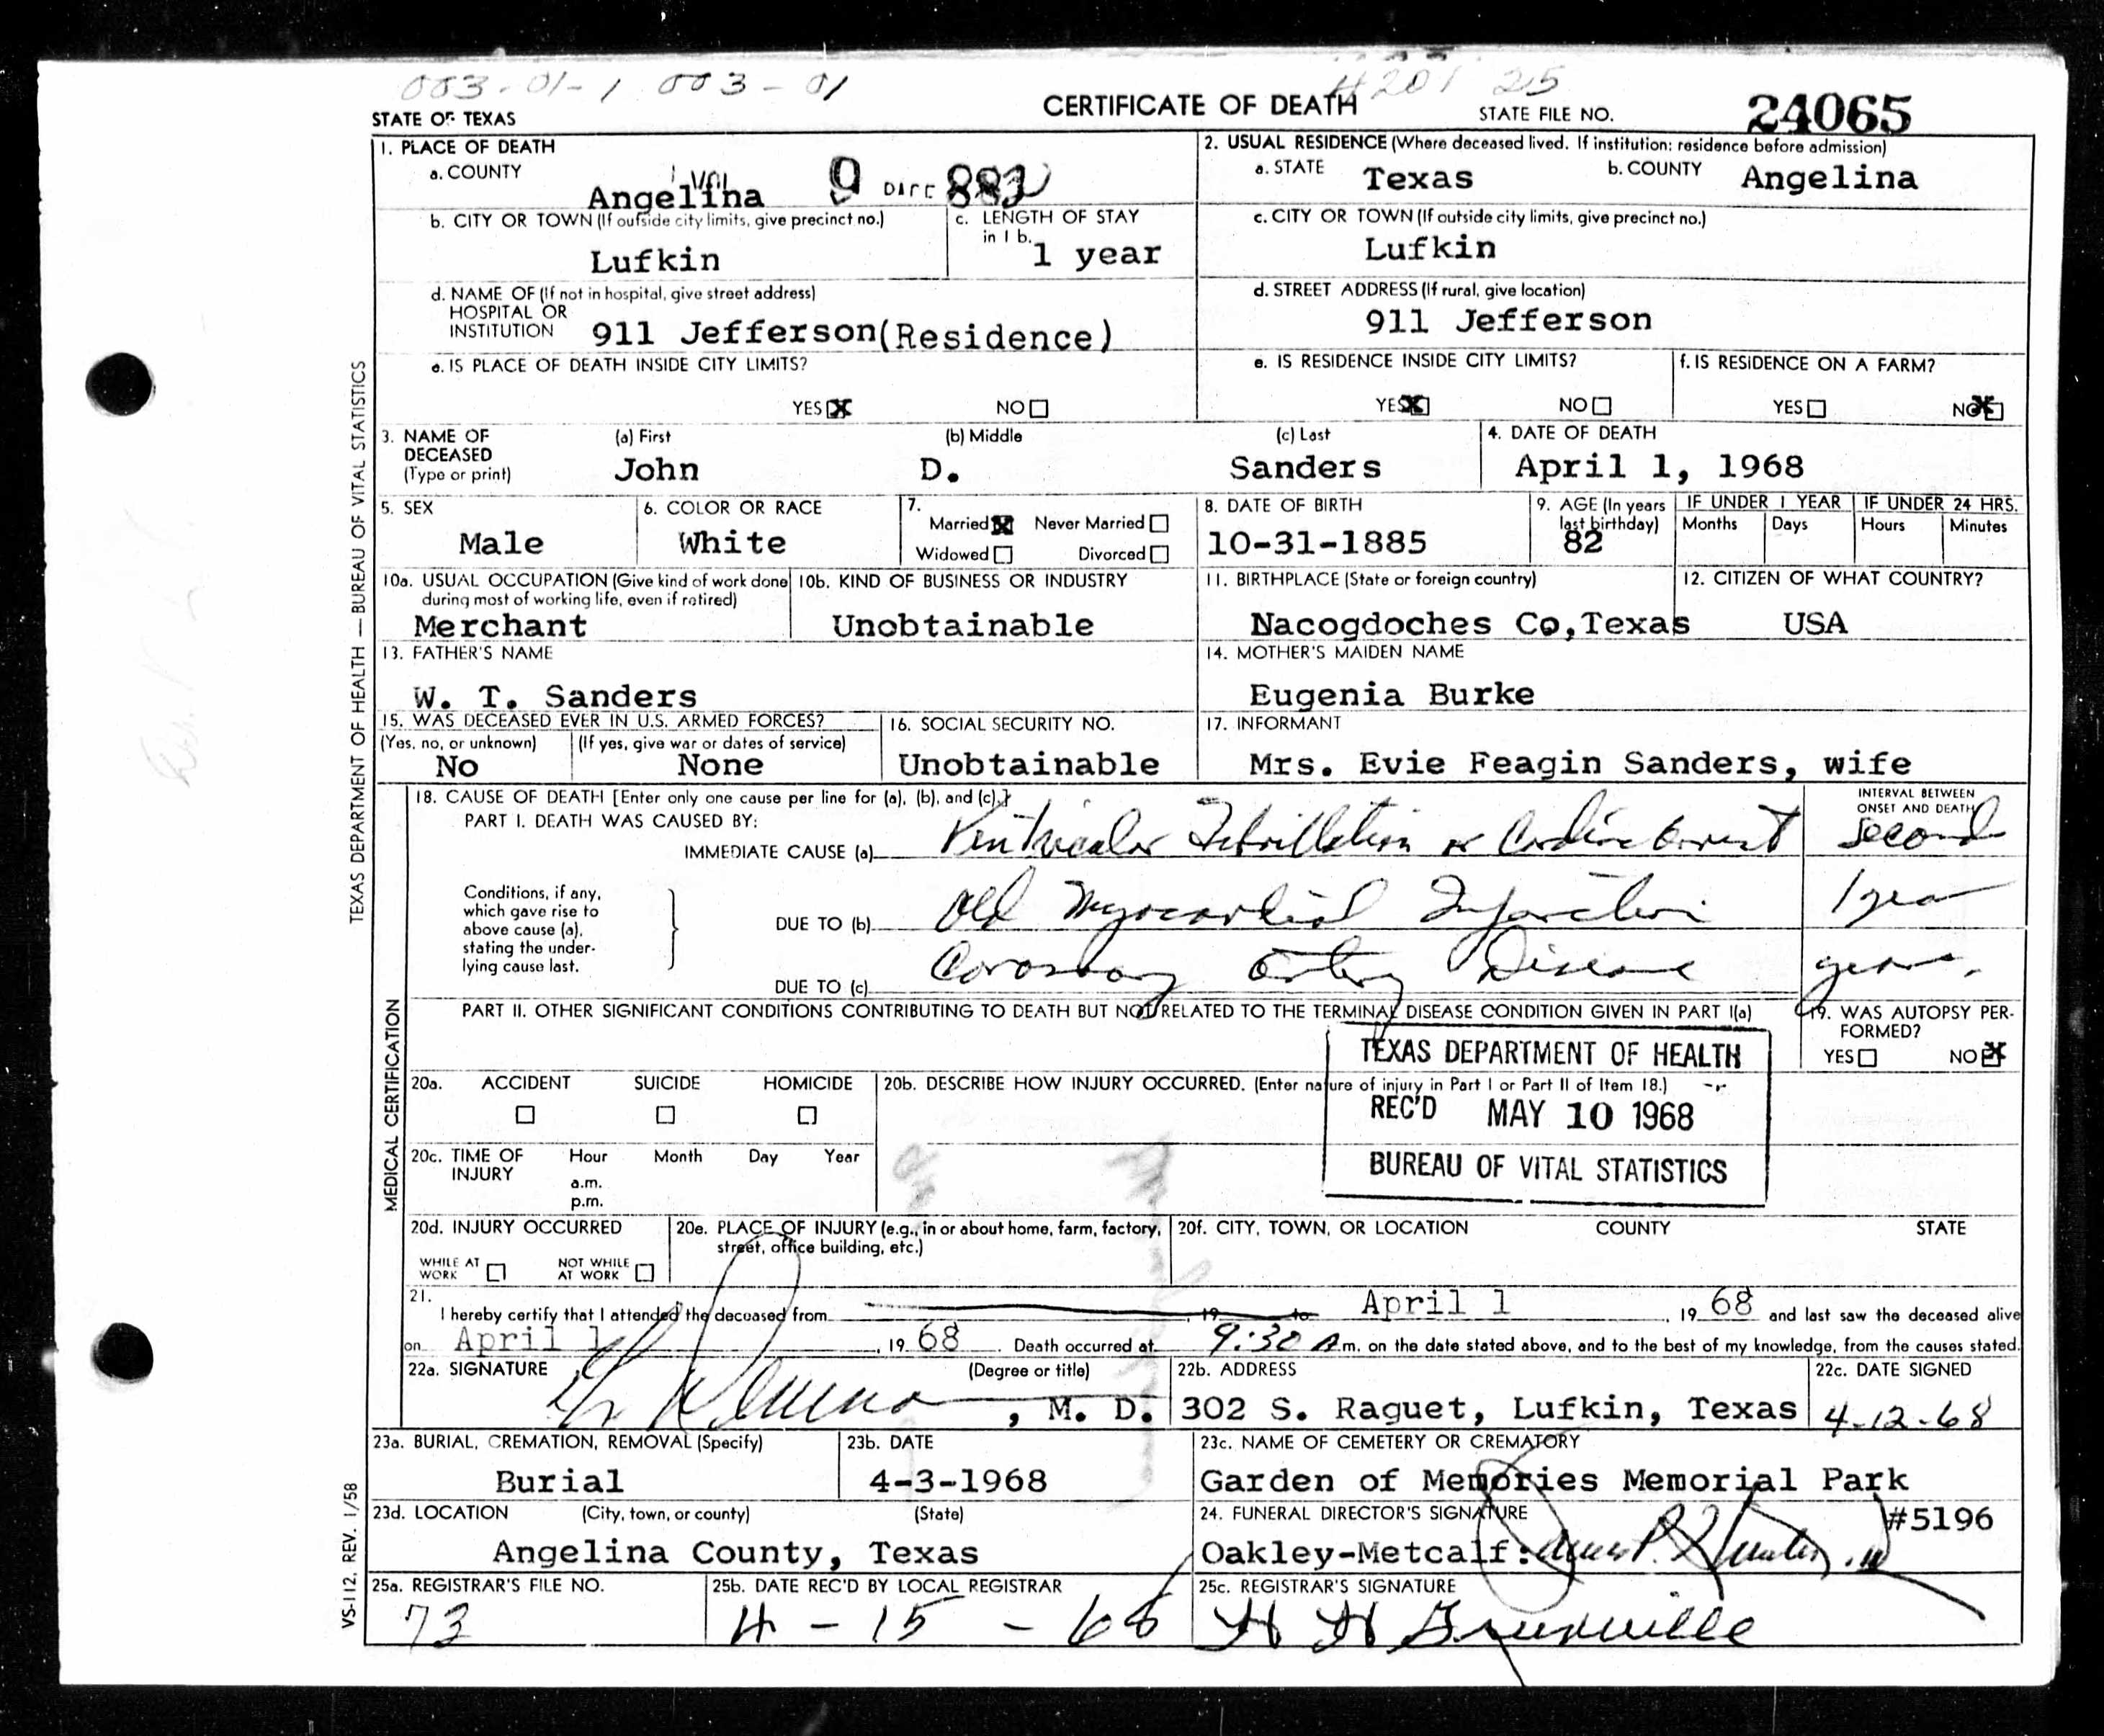 003-01-1 003-01
4201 25
STATE OF TEXAS
CERTIFICATE OF DEATH
STATE FILE NO. 24065
1. PLACE OF DEATH
a. COUNTY
Angelina
2. USUAL RESIDENCE (Where deceased lived. If institution: residence before admission)
a. STATE Texas
b. COUNTY Angelina
b. CITY OR TOWN (If outside city limits, give precinct no.)
Lufkin
c. LENGTH OF STAY
in 1 b.
1 year
c. CITY OR TOWN (If outside city limits, give precinct no.)
Lufkin
d. NAME OF (If not in hospital, give street address)
HOSPITAL OR
INSTITUTION 911 Jefferson(Residence)
d. STREET ADDRESS (If rural, give location)
911 Jefferson
e. IS PLACE OF DEATH INSIDE CITY LIMITS?
YES X NO
e. IS RESIDENCE INSIDE CITY LIMITS?
YES X NO
f. IS RESIDENCE ON A FARM?
YES NO X
3. NAME OF
DECEASED
(Type or print)
(a) First
John
(b) Middle
D.
(c) Last
Sanders
4. DATE OF DEATH
April 1, 1968
5. SEX
Male
6. COLOR OR RACE
White
7.
Married X Never Married
Widowed Divorced
8. DATE OF BIRTH
10-31-1885
9. AGE (In years
last birthday)
82
IF UNDER 1 YEAR
Months Days
IF UNDER 24 HRS.
Hours Minutes
10a. USUAL OCCUPATION (Give kind of work done
during most of working life, even if retired)
Merchant
10b. KIND OF BUSINESS OR INDUSTRY
Unobtainable
11. BIRTHPLACE (State or foreign country)
Nacogdoches Co,Texas
12. CITIZEN OF WHAT COUNTRY?
USA
13. FATHER'S NAME
W. T. Sanders
14. MOTHER'S MAIDEN NAME
Eugenia Burke
15. WAS DECEASED EVER IN U.S. ARMED FORCES?
(Yes, no, or unknown)
No
(If yes, give war or dates of service)
None
16. SOCIAL SECURITY NO.
Unobtainable
17. INFORMANT
Mrs. Evie Feagin Sanders, wife
18. CAUSE OF DEATH [Enter only one cause per line for (a), (b), and (c).]
PART I. DEATH WAS CAUSED BY:
INTERVAL BETWEEN
ONSET AND DEATH
IMMEDIATE CAUSE (a) Ventricular Fibrillation or Cardiac Arrest second
Conditions, if any,
which gave rise to
above cause (a),
stating the under-
lying cause last.
DUE TO (b) Old Myocardial Infarction 1 year
DUE TO (c) Coronary Artery Disease years.
PART II. OTHER SIGNIFICANT CONDITIONS CONTRIBUTING TO DEATH BUT NOT RELATED TO THE TERMINAL DISEASE CONDITION GIVEN IN PART I(a)
19. WAS AUTOPSY PER-
FORMED?
YES NO X
TEXAS DEPARTMENT OF HEALTH
REC'D MAY 10 1968
BUREAU OF VITAL STATISTICS
20a. ACCIDENT SUICIDE HOMICIDE
20b. DESCRIBE HOW INJURY OCCURRED. (Enter nature of injury in Part I or Part II of Item 18.)
20c. TIME OF
INJURY
Hour Month Day Year
a.m.
p.m.
20d. INJURY OCCURRED
WHILE AT
WORK
NOT WHILE
AT WORK
20e. PLACE OF INJURY (e.g., in or about home, farm, factory,
street, office building, etc.)
20f. CITY, TOWN, OR LOCATION COUNTY STATE
21.
I hereby certify that I attended the deceased from , 19 to April 1 , 19 68 and last saw the deceased alive
on April 1 , 19 68 . Death occurred at 9:30 A.m. on the date stated above, and to the best of my knowledge, from the causes stated.
22a. SIGNATURE (Degree or title)
, M. D.
22b. ADDRESS
302 S. Raguet, Lufkin, Texas
22c. DATE SIGNED
4-12-68
23a. BURIAL, CREMATION, REMOVAL (Specify)
Burial
23b. DATE
4-3-1968
23c. NAME OF CEMETERY OR CREMATORY
Garden of Memories Memorial Park
23d. LOCATION (City, town, or county) (State)
Angelina County, Texas
24. FUNERAL DIRECTOR'S SIGNATURE
#5196
Oakley-Metcalf:
25a. REGISTRAR'S FILE NO.
73
25b. DATE REC'D BY LOCAL REGISTRAR
4-15-68
25c. REGISTRAR'S SIGNATURE
TEXAS DEPARTMENT OF HEALTH — BUREAU OF VITAL STATISTICS
MEDICAL CERTIFICATION
VS-112, REV. 1/58